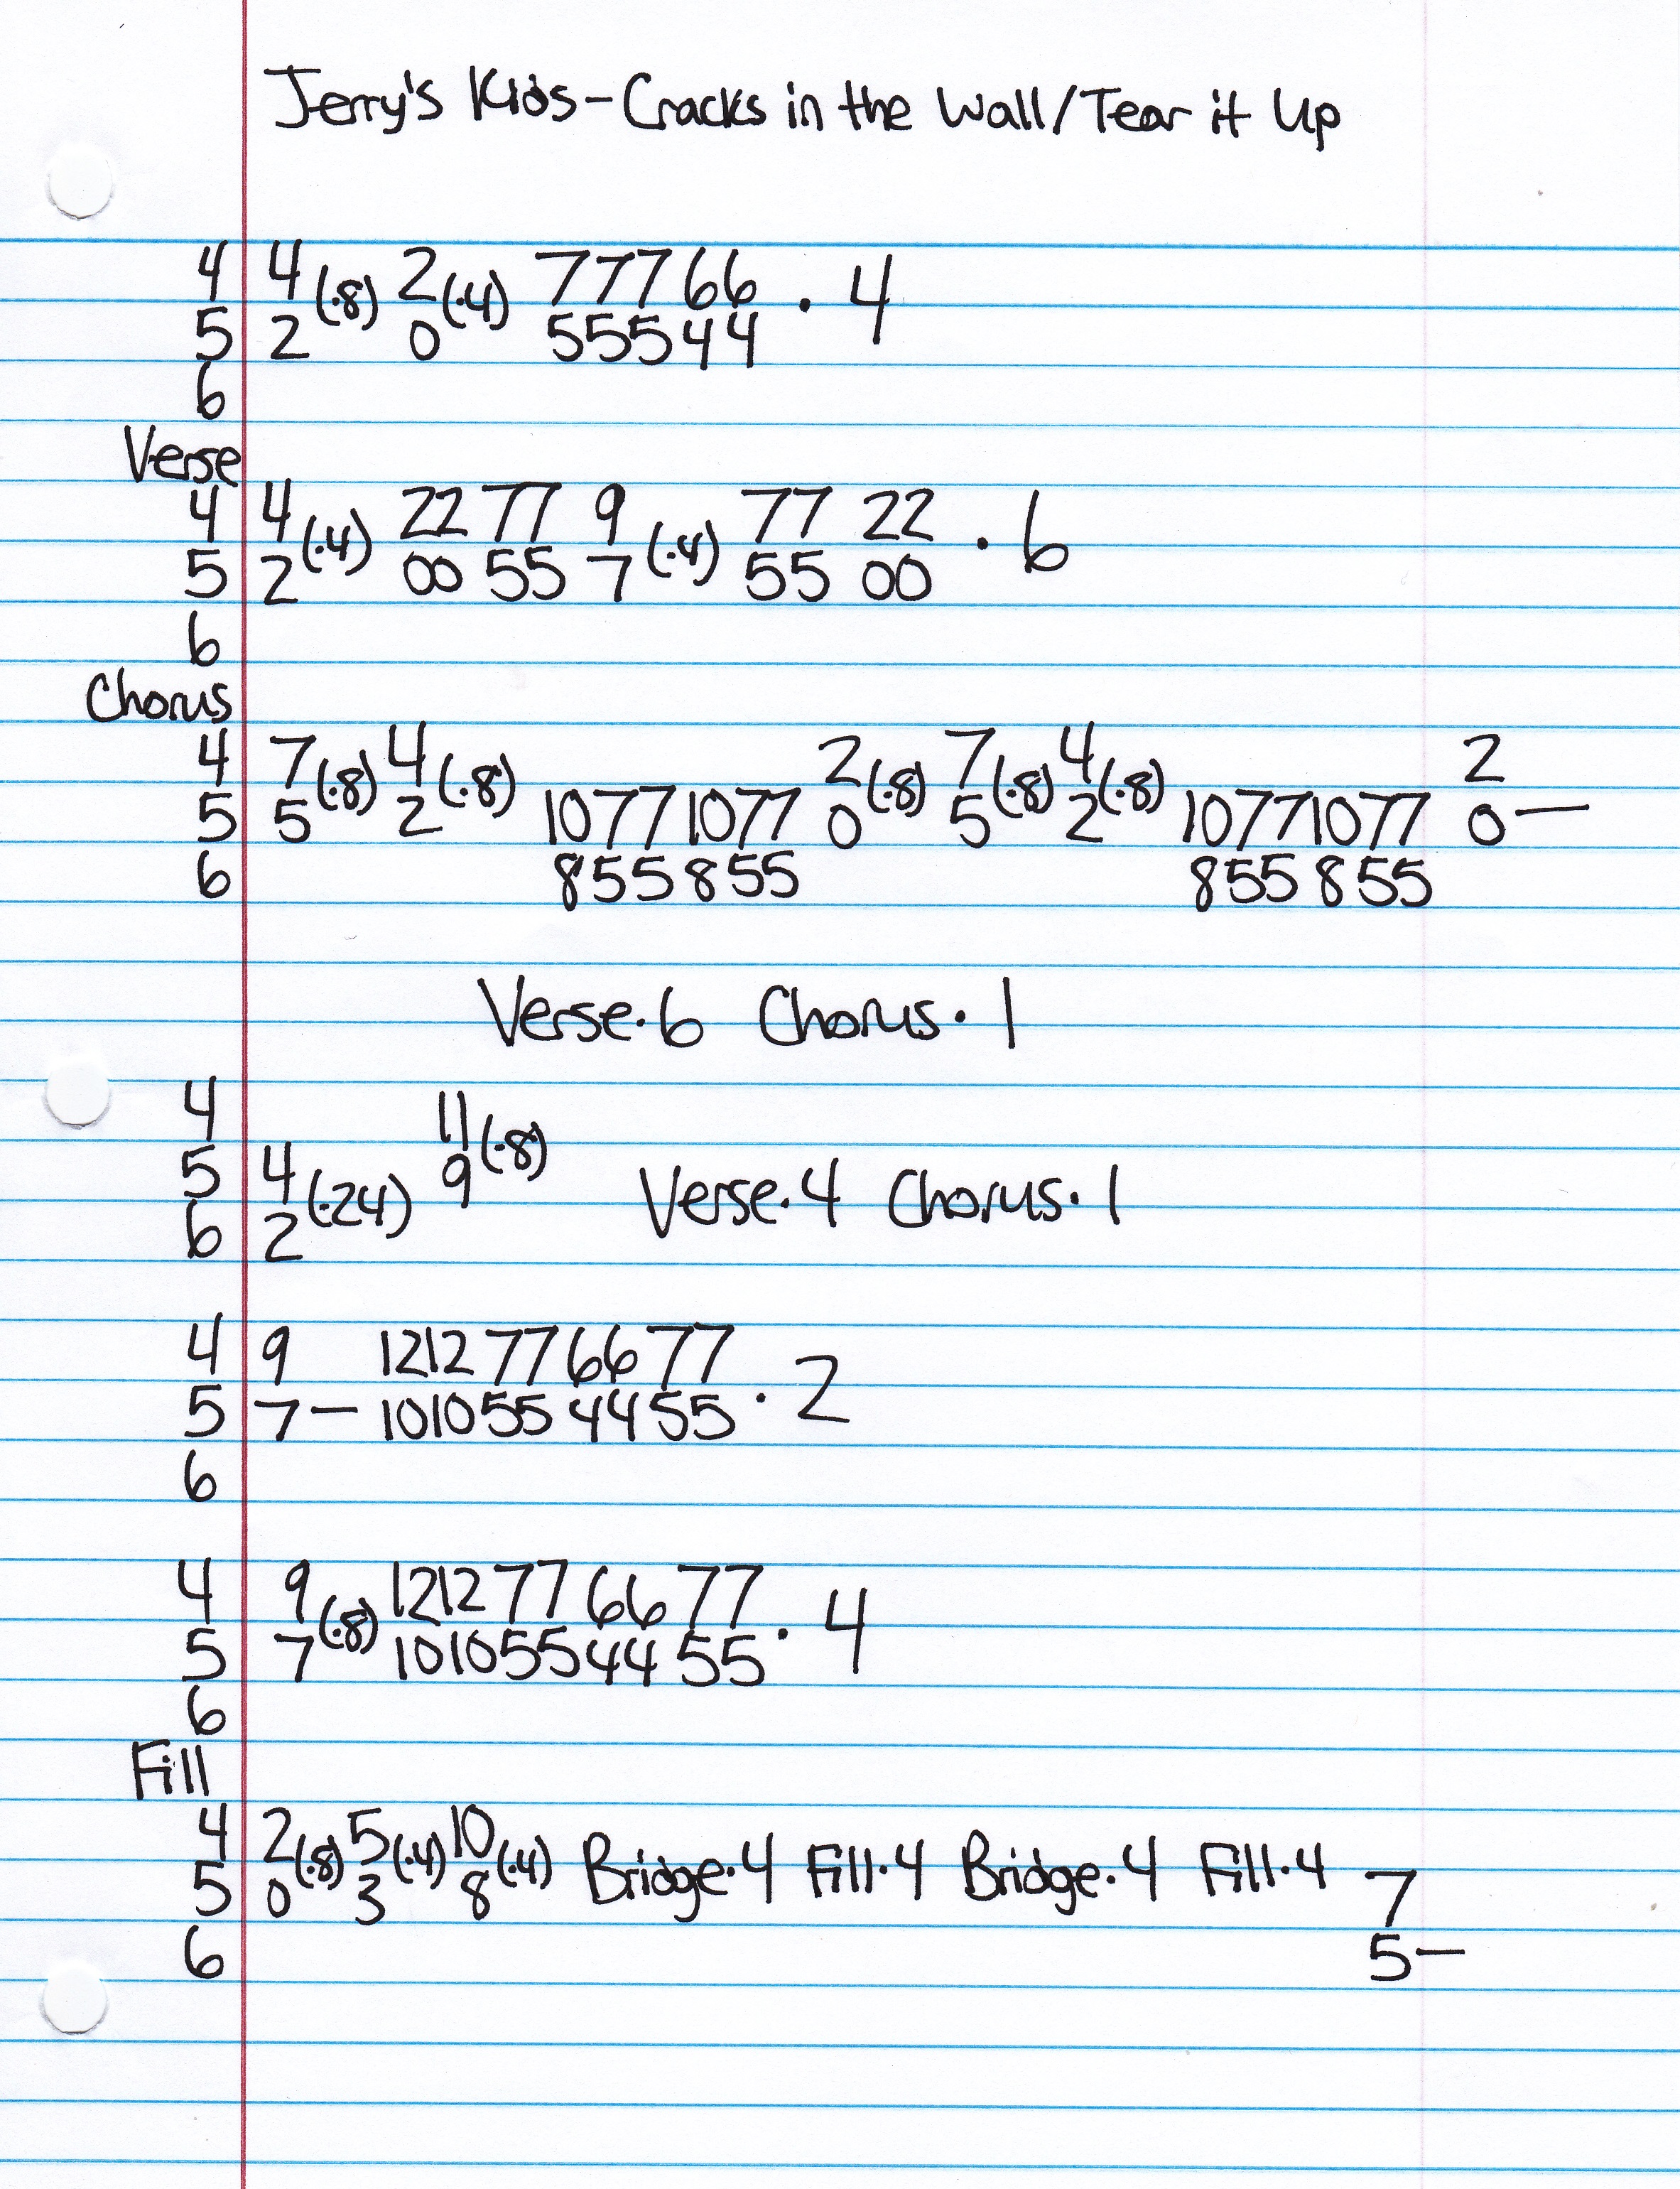 Jerry's Kids - Cracks in the Wall/Tear it Up
4 4 (·8) 2 (·4) 77766 · 4
5 2 0 55544
6
Verse
4 4 (·4) 22 77 9 (·4) 77 22 · 6
5 2 00 55 7 55 00
6
Chorus
4 7 (·8) 4 (·8) 2 (·8) 7 (·8) 4 (·8) 2
5 5 2 1077 1077 0 5 2 10771077 0 —
6 855 855 855 855
Verse·6 Chorus·1
4 11 (·8)
5 4 (·24) 9 Verse·4 Chorus·1
6 2
4 9 1212 77 66 77 · 2
5 7 — 1010 55 44 55
6
4 9 (·8) 1212 77 66 77 · 4
5 7 1010 55 44 55
6
Fill
4 2 (·8) 5 (·4) 10 (·4) Bridge·4 Fill·4 Bridge·4 Fill·4 7
5 0 3 8 5 —
6